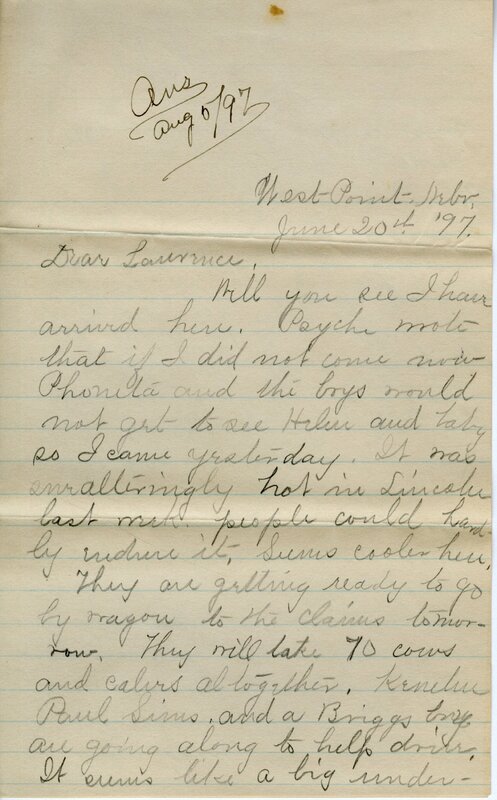 Ans
Aug 5/97
West Point, Nebr.
June 20th, '97.
Dear Lawrence,
Well you see I have
arrived here. Psyche wrote
that if I did not come now
Phoneta and the boys would
not get to see Helen and baby
so I came yesterday. It was
sweltringly hot in Lincoln
last week. people could hard-
ly endure it, Seems cooler here,
They are getting ready to go
by wagon to the claims tomor-
row. They will take 70 cows
and calves altogether.
Paul Sims, and a Briggs boy
are going along to help drive.
It seems like a big under-